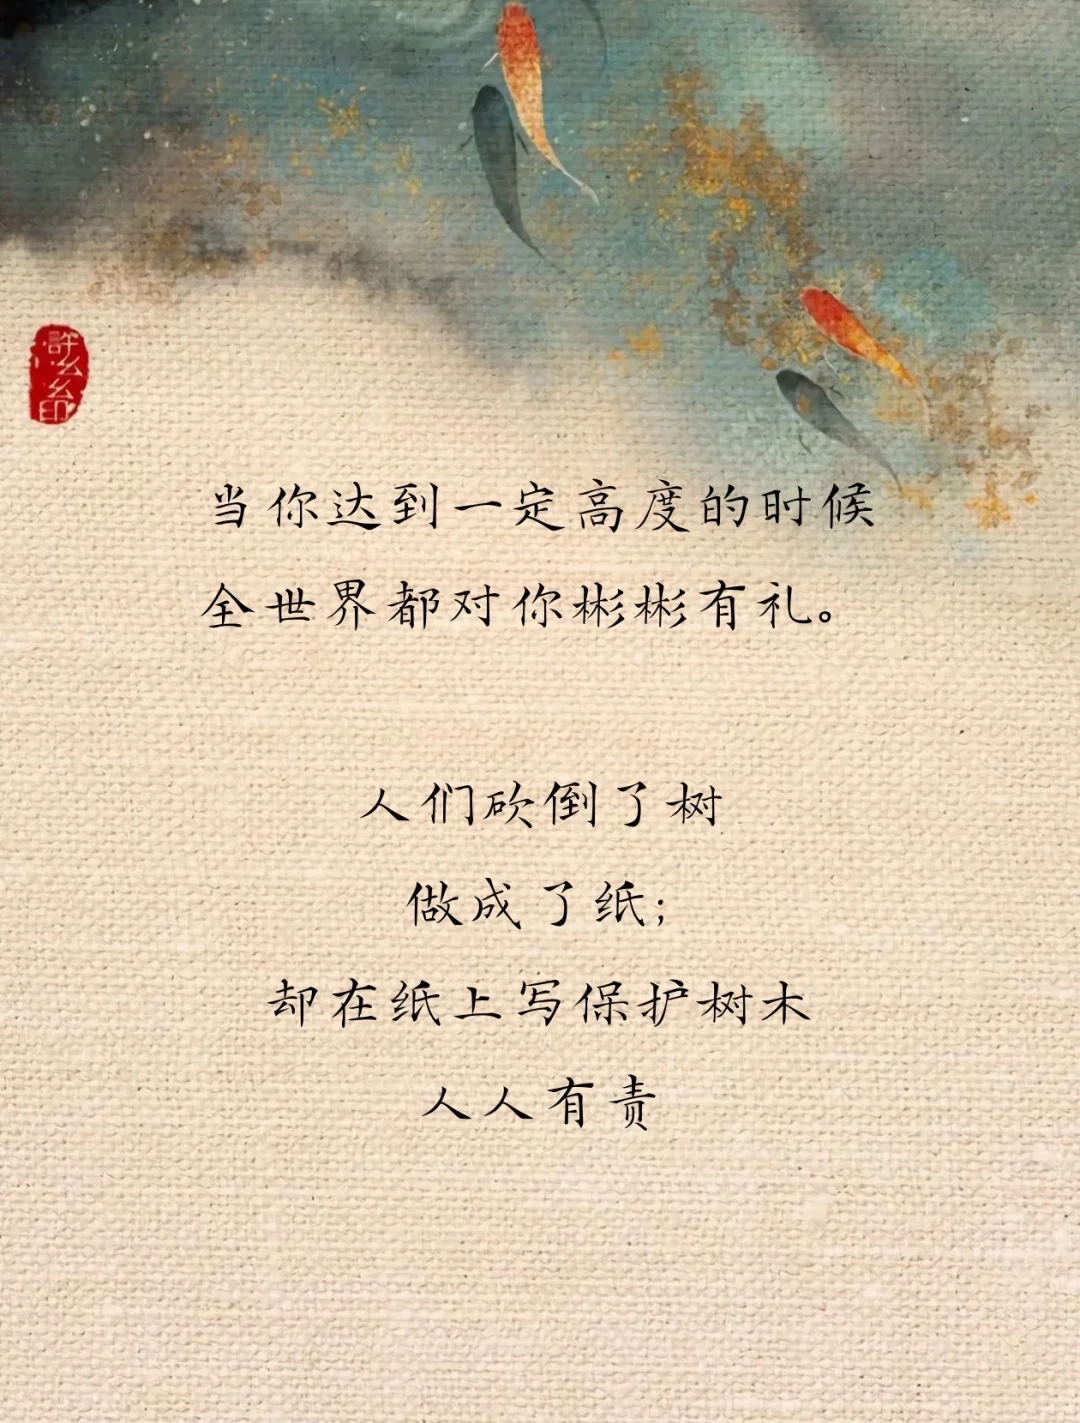 当你达到一定高度的时候
全世界都对你彬彬有礼。
人们砍倒了树
做成了纸；
却在纸上写保护树木
人人有责